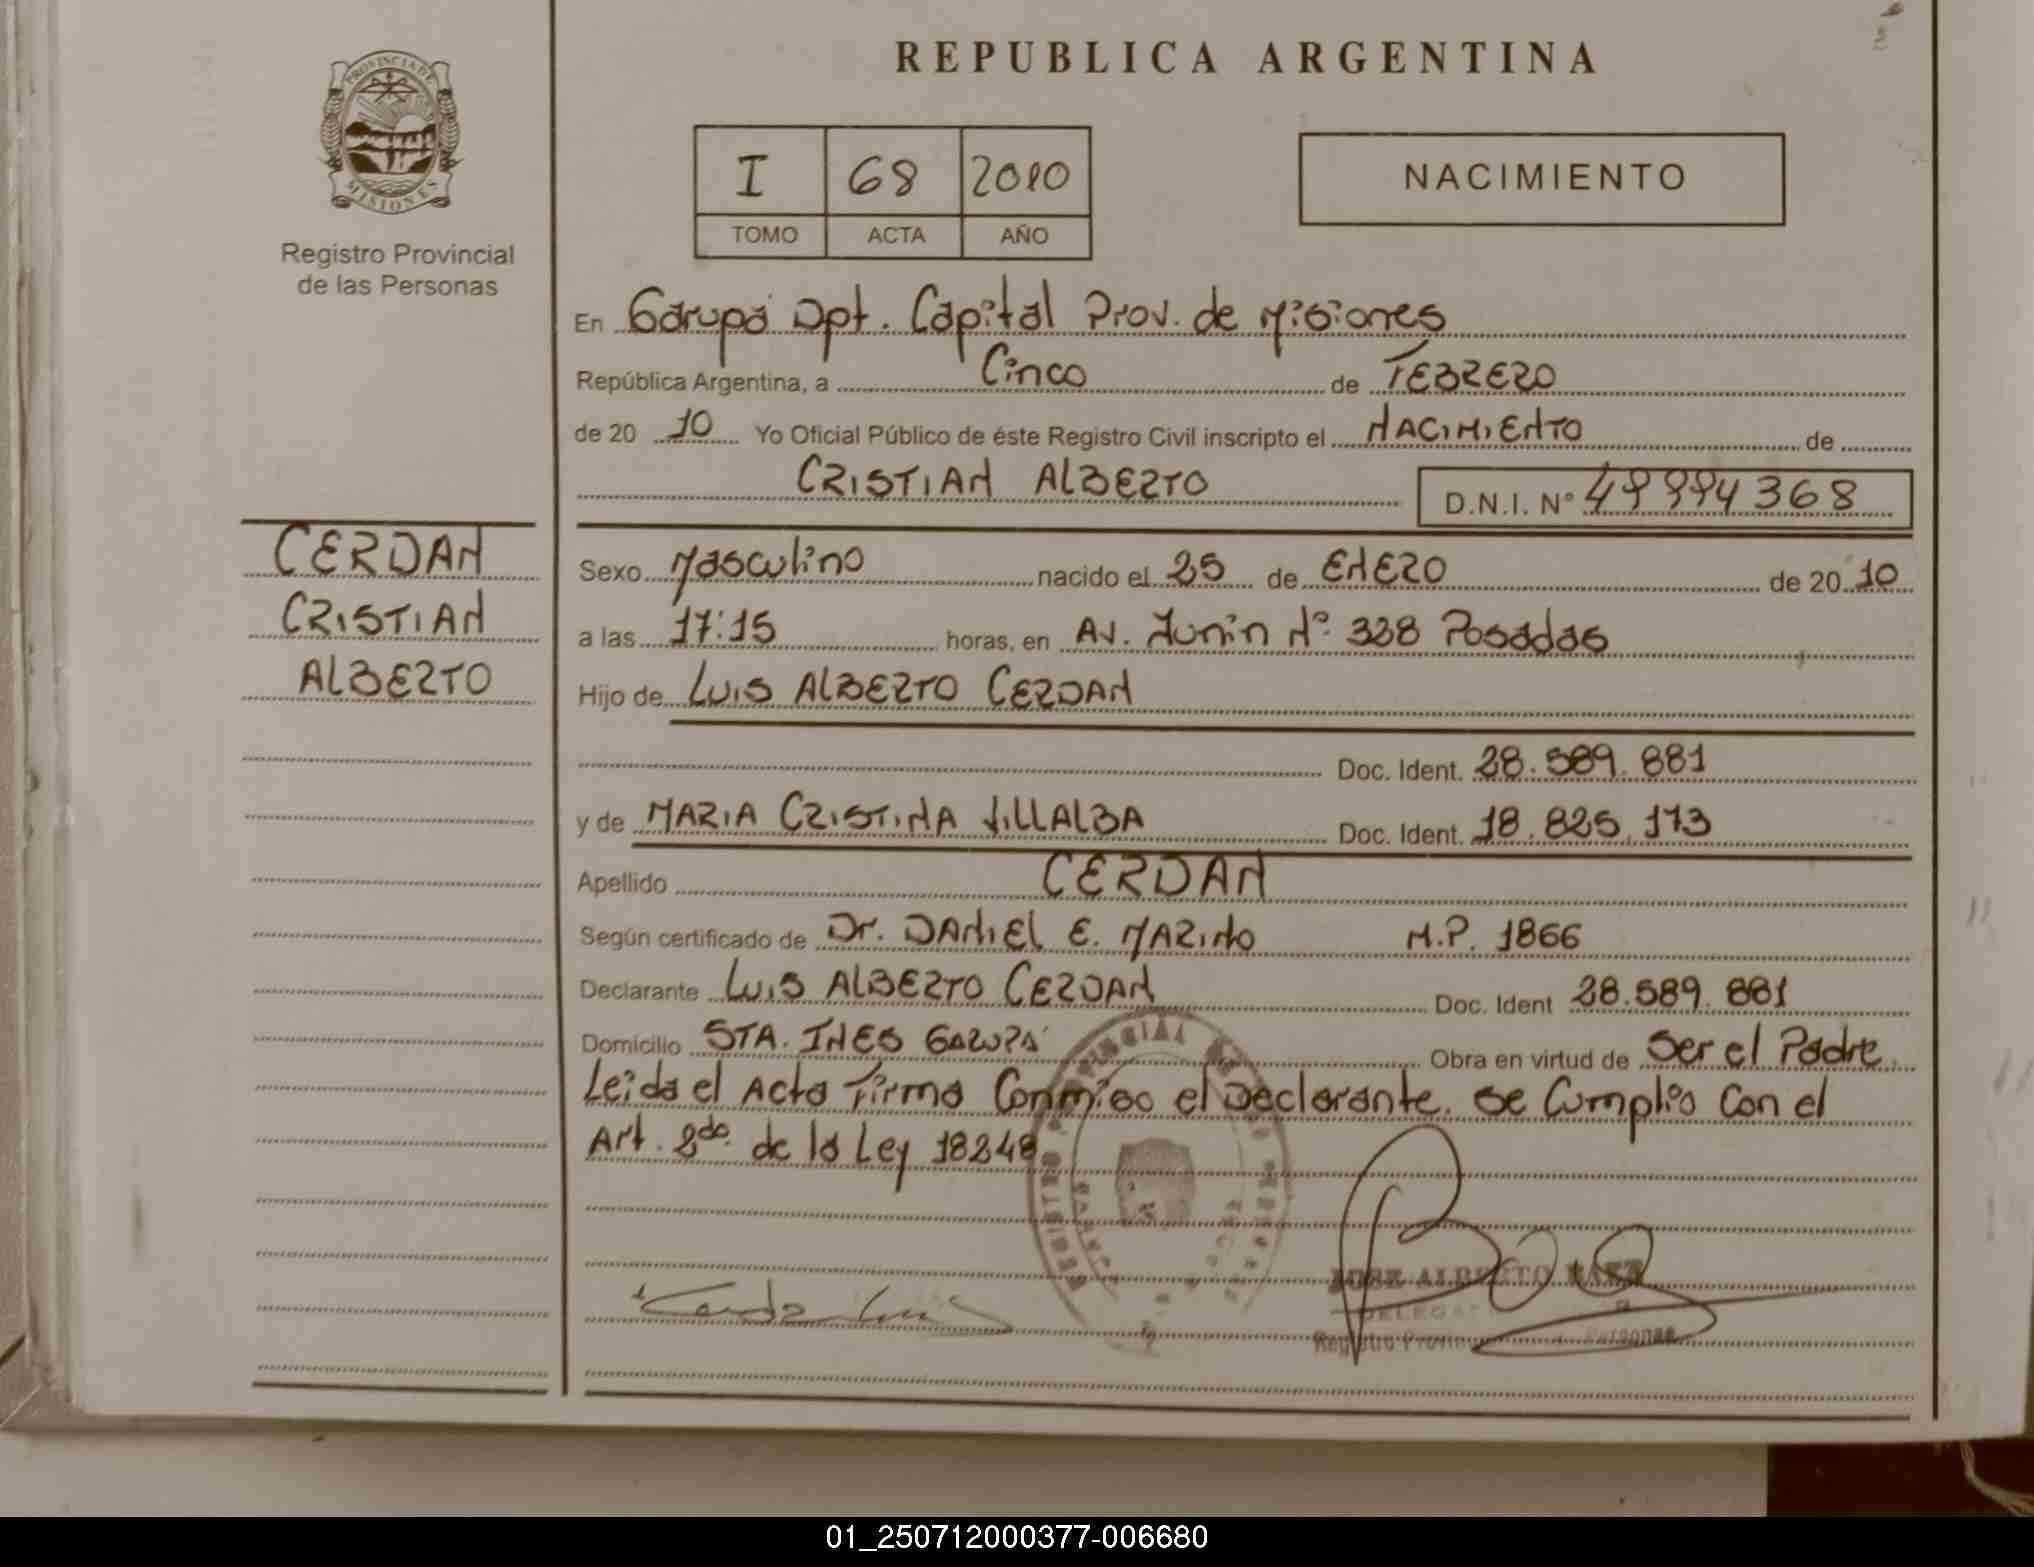 REPUBLICA ARGENTINA
PROVINCIA DE
MISIONES
Registro Provincial
de las Personas
I 68 2010
TOMO ACTA AÑO
NACIMIENTO
En Garupá Dpt. Capital Prov. de Misiones
República Argentina, a Cinco de FEBRERO
de 20 10 Yo Oficial Público de éste Registro Civil inscripto el NACIMIENTO de
CRISTIAN ALBERTO D.N.I. Nº 49994368
CERDAN
CRISTIAN
ALBERTO
Sexo Masculino nacido el 25 de ENERO de 20 10
a las 17:15 horas, en Av. Junin Nº 338 Posadas
Hijo de LUIS ALBERTO CERDAN
Doc. Ident. 28.589.881
y de MARIA CRISTINA VILLALBA Doc. Ident. 18.825.173
Apellido CERDAN
Según certificado de Dr. DANIEL E. MARINO M.P. 1866
Declarante LUIS ALBERTO CERDAN Doc. Ident 28.589.881
Domicilio STA. INES GARUPA Obra en virtud de Ser el Padre.
Leida el Acta Firma Conmigo el Declarante. Se Cumplio Con el
Art. 2do. de la Ley 18248
JOSE ALBERTO BAEZ
DELEGA
Registro Provin Personas
01_250712000377-006680